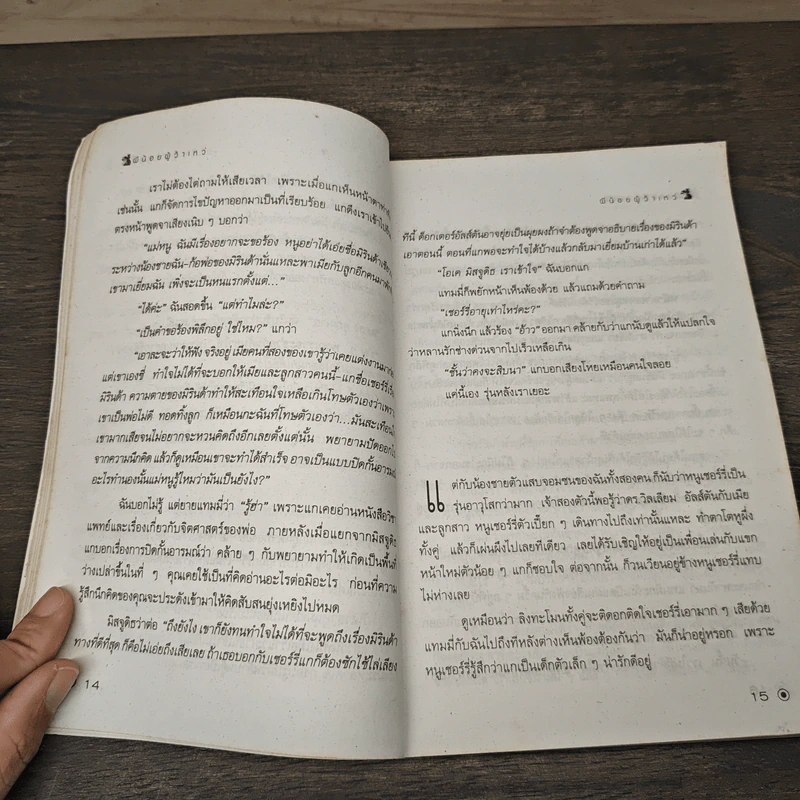 ผีน้อยผู้ว้าเหว่
เราไม่ต้องไต่ถามให้เสียเวลา เพราะเมื่อแกเห็นหน้าตาท่าที
เช่นนั้น แกก็จัดการไขปัญหาออกมาเป็นที่เรียบร้อย แกดึงเราเข้าไป
ตรงหน้าพูดจาเสียงเนิบ ๆ บอกว่า
"แม่หนู ฉันมีเรื่องอยากจะขอร้อง หนูอย่าได้เอ่ยชื่อมิรินด้า
ระหว่างน้องชายฉัน-ก้อพ่อของมิรินด้านั่นแหละพาเมียกับลูกอีกคนมา
เขามาเยี่ยมฉัน เพิ่งจะเป็นหนแรกตั้งแต่..."
"ได้ค่ะ" ฉันสอดขึ้น "แต่ทำไมล่ะ?"
"เป็นคำขอร้องพิลึกอยู่ ใช่ไหม?" แกว่า
"เอาละจะว่าให้ฟัง จริงอยู่ เมียคนที่สองของเขารู้ว่าเคยแต่งงานมา
แต่เขาเองซี ทำใจไม่ได้ที่จะบอกให้เมียและลูกสาวคนนี้-แกชื่อเชอร์รี่
มิรินด้า ความตายของมิรินด้าทำให้สะเทือนใจเหลือเกินโทษตัวเองว่า
เขาเป็นพ่อไม่ดี ทอดทิ้งลูก ก็เหมือนกะฉันที่โทษตัวเองว่า...มันสะเทือนใจ
เขามากเสียจนไม่อยากจะหวนคิดถึงอีกเลยตั้งแต่นั้น พยายามปัดออกไป
จากความนึกคิด แล้วก็ดูเหมือนเขาจะทำได้สำเร็จ อาจเป็นแบบปิดกั้นอารมณ์
อะไรทำนองนั้นแม่หนูรู้ไหมว่ามันเป็นยังไง?"
ฉันบอกไม่รู้ แต่ยายแทมมี่ว่า "รู้ฮ่า" เพราะแกเคยอ่านหนังสือวิชา
แพทย์และเรื่องเกี่ยวกับจิตศาสตร์ของพ่อ ภายหลังเมื่อแยกจากมิสจูดิธ
แกบอกเรื่องการปิดกั้นอารมณ์ว่า คล้าย ๆ กับพยายามทำให้เกิดเป็นพื้นที่
ว่างเปล่าขึ้นในที่ ๆ คุณเคยใช้เป็นที่คิดอ่านอะไรต่อมิอะไร ก่อนที่ความ
รู้สึกนึกคิดของคุณจะประดังเข้ามาให้คิดสับสนยุ่งเหยิงไปหมด
มิสจูดิธว่าต่อ "ถึงยังไง เขาก็ยังทนทำใจไม่ได้ที่จะพูดถึงเรื่องมิรินด้า
ทางที่ดีที่สุด ก็คือไม่เอ่ยถึงเสียเลย ถ้าเธอบอกกับเชอร์รี่แกก็ต้องซักไซ้ไล่เลียง
14
ผีน้อยผู้ว้าเหว่
ทีนี้ ด็อกเตอร์อัลส์ตันอาจยุ่ยเป็นผุยผงถ้าจำต้องพูดจาอธิบายเรื่องของมิรินด้า
เอาตอนนี้ ตอนที่แกพอจะทำใจได้บ้างแล้วกลับมาเยี่ยมบ้านเก่าได้แล้ว"
"โอเค มิสจูดิธ เราเข้าใจ" ฉันบอกแก
แทมมี่ก็พยักหน้าเห็นพ้องด้วย แล้วแถมด้วยคำถาม
"เชอร์รี่อายุเท่าไหร่คะ?"
แกนิ่งนึก แล้วร้อง "อ้าว" ออกมา คล้ายกับว่าแกนับดูแล้วให้แปลกใจ
ว่าหลานรักช่างด่วนจากไปเร็วเหลือเกิน
"ชั้นว่าคงจะสิบนา" แกบอกเสียงโหยเหมือนคนใจลอย
แค่นี้เอง รุ่นหลังเราเยอะ
แต่กับน้องชายตัวแสบจอมซนของฉันทั้งสองคน ก็นับว่าหนูเชอร์รี่เป็น
รุ่นอาวุโสกว่ามาก เจ้าสองตัวนี้พอรู้ว่าดร.วิลเลียม อัลส์ตันกับเมีย
และลูกสาว หนูเชอร์รี่ตัวเปี๊ยก ๆ เดินทางไปถึงเท่านั้นแหละ ทำตาโตหูผึ่ง
ทั้งคู่ แล้วก็เผ่นผึงไปเลยทีเดียว เลยได้รับเชิญให้อยู่เป็นเพื่อนเล่นกับแขก
หน้าใหม่ตัวน้อย ๆ แกก็ชอบใจ ต่อจากนั้น ก็วนเวียนอยู่ข้างหนูเชอร์รี่แทบ
ไม่ห่างเลย
ดูเหมือนว่า ลิงทะโมนทั้งคู่จะติดอกติดใจเชอร์รี่เอามาก ๆ เสียด้วย
แทมมี่กับฉันไปถึงทีหลังต่างเห็นพ้องต้องกันว่า มันก็น่าอยู่หรอก เพราะ
หนูเชอร์รี่รู้สึกว่าแกเป็นเด็กตัวเล็ก ๆ น่ารักดีอยู่
15